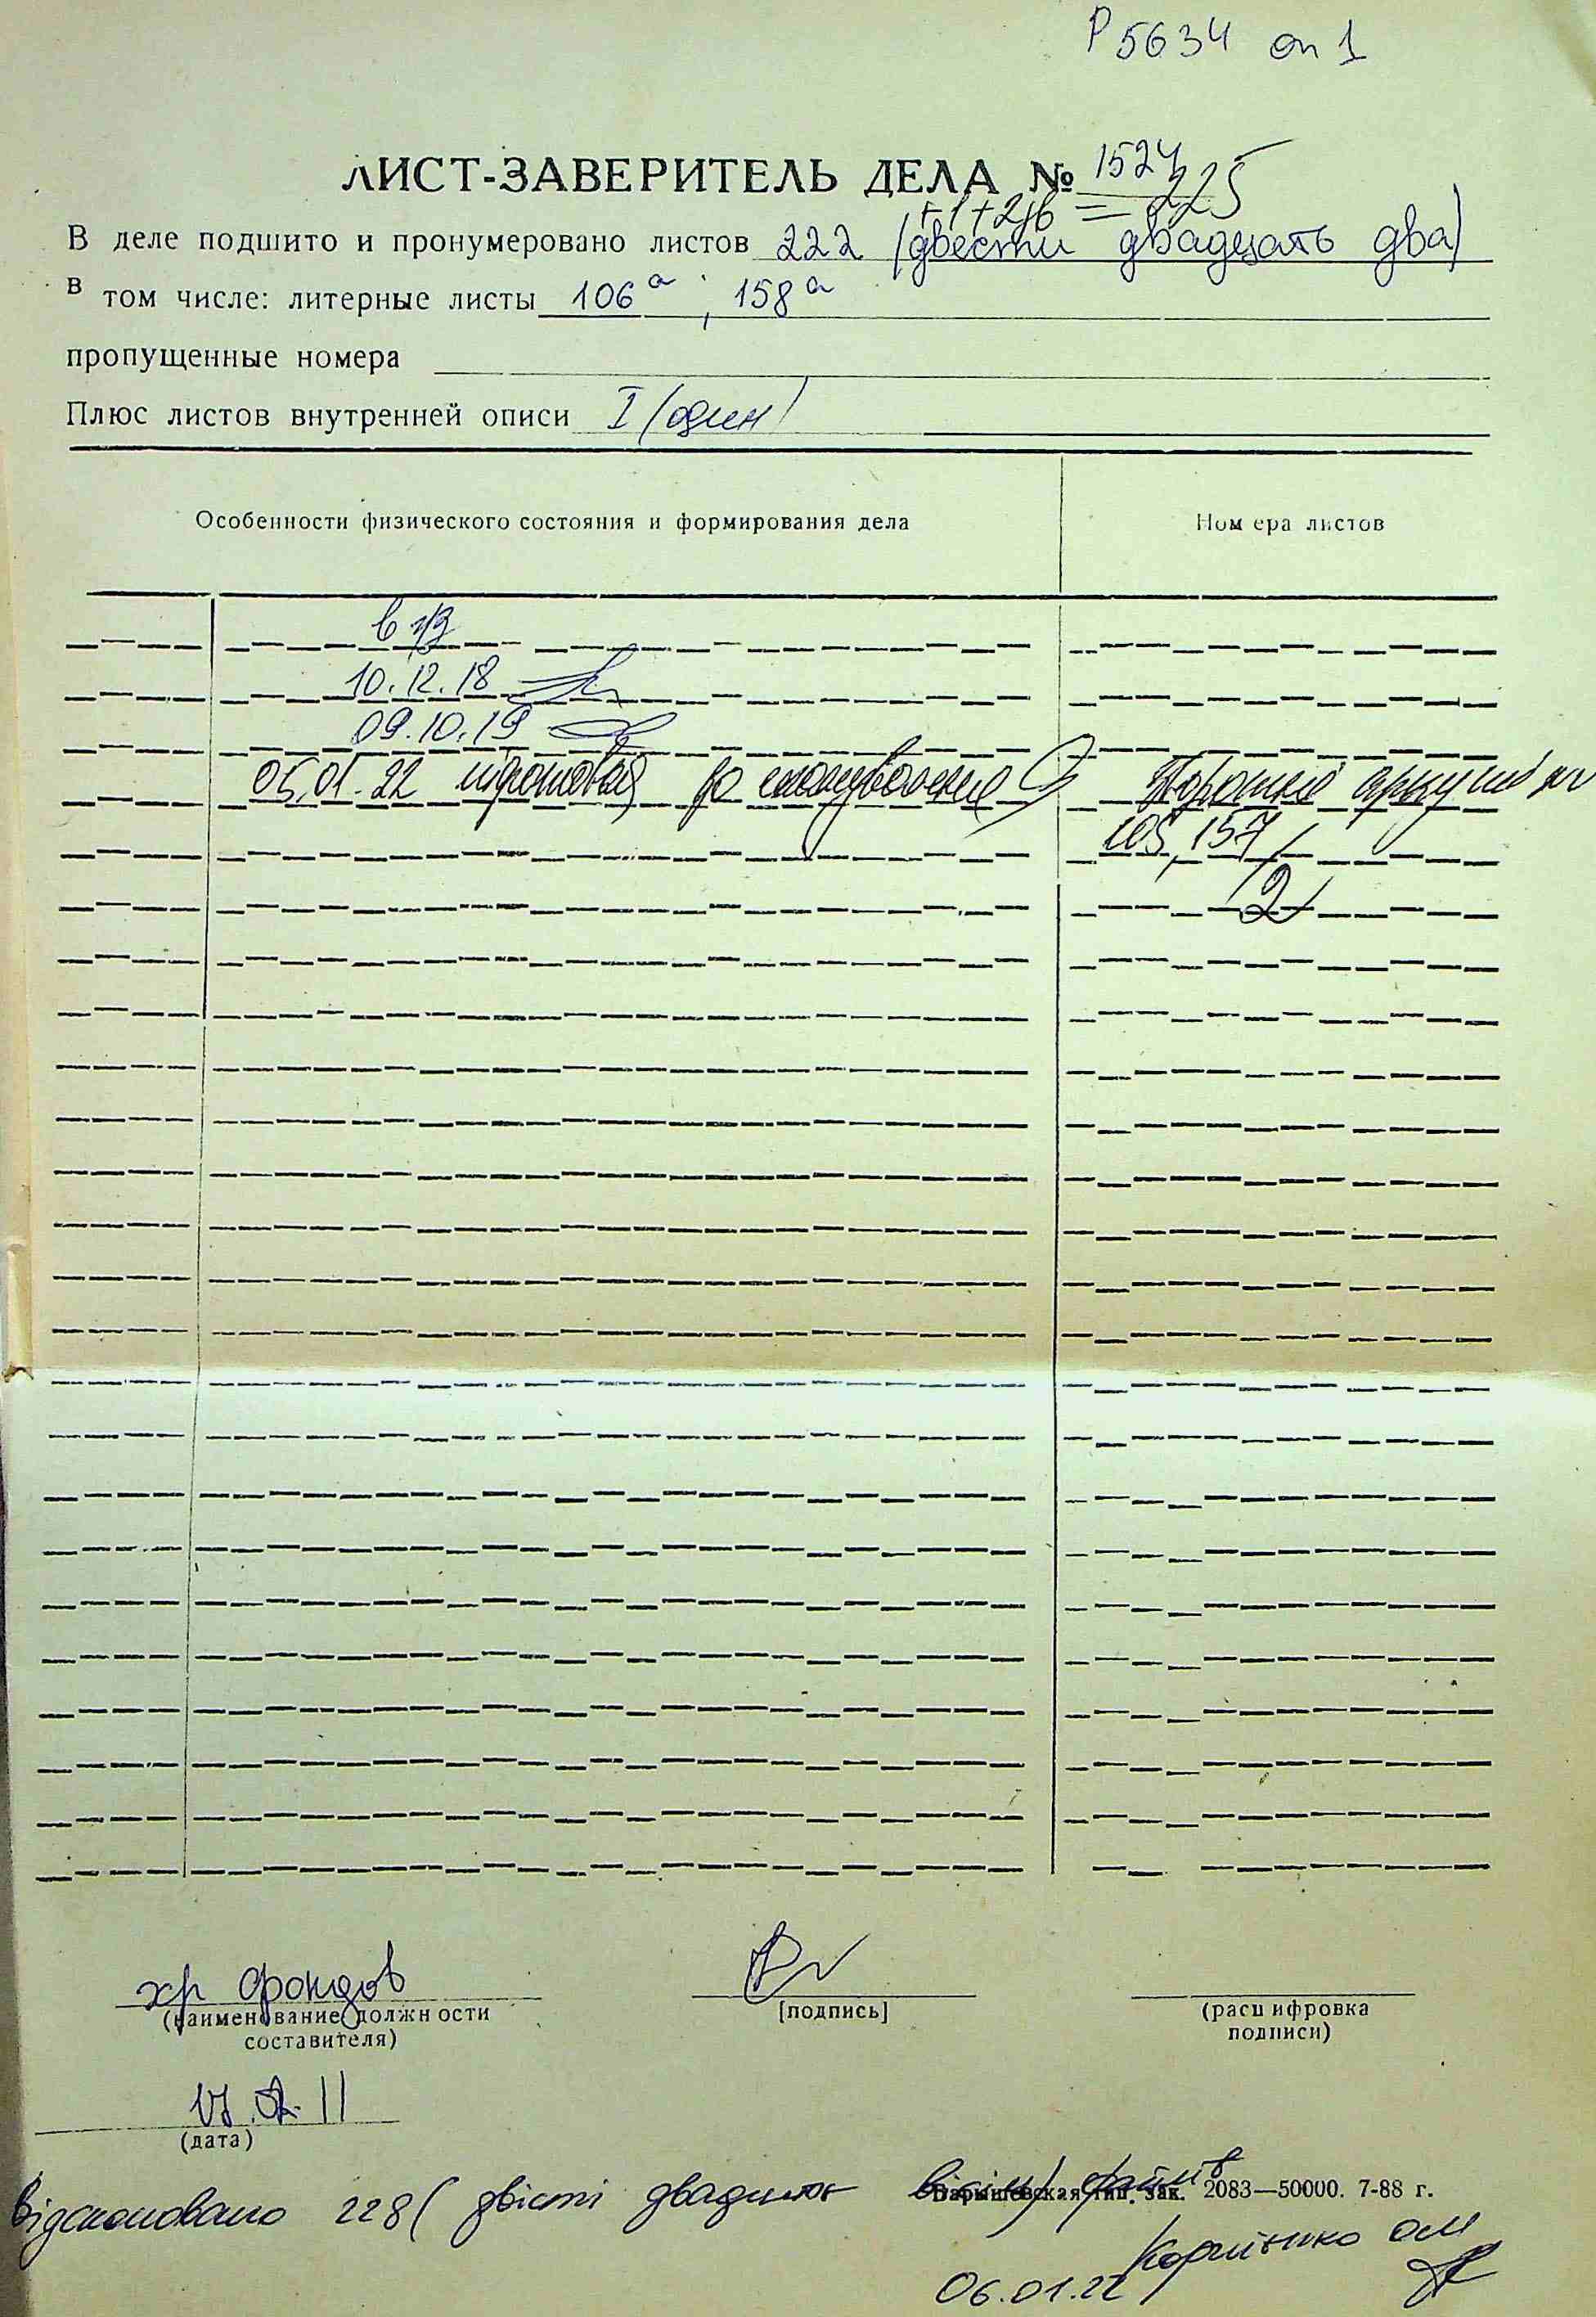 Р 5634 оп 1
ЛИСТ-ЗАВЕРИТЕЛЬ ДЕЛА № 1524
+1+2 = 225
В деле подшито и пронумеровано листов 222 (двести двадцать два)
в том числе: литерные листы 106а; 158а
пропущенные номера
Плюс листов внутренней описи I (один)
Особенности физического состояния и формирования дела
Номера листов
10.12.18
09.10.19
05.01.22 до сканування
Порожні аркуші
105, 157
2
хр фондов
(наименование должности составителя)
[подпись]
(расшифровка подписи)
(дата)
Барышевская тип. Зак. 2083—50000. 7-88 г.
Відскановано 228 (двісті двадцять вісім) файлів
06.01.22